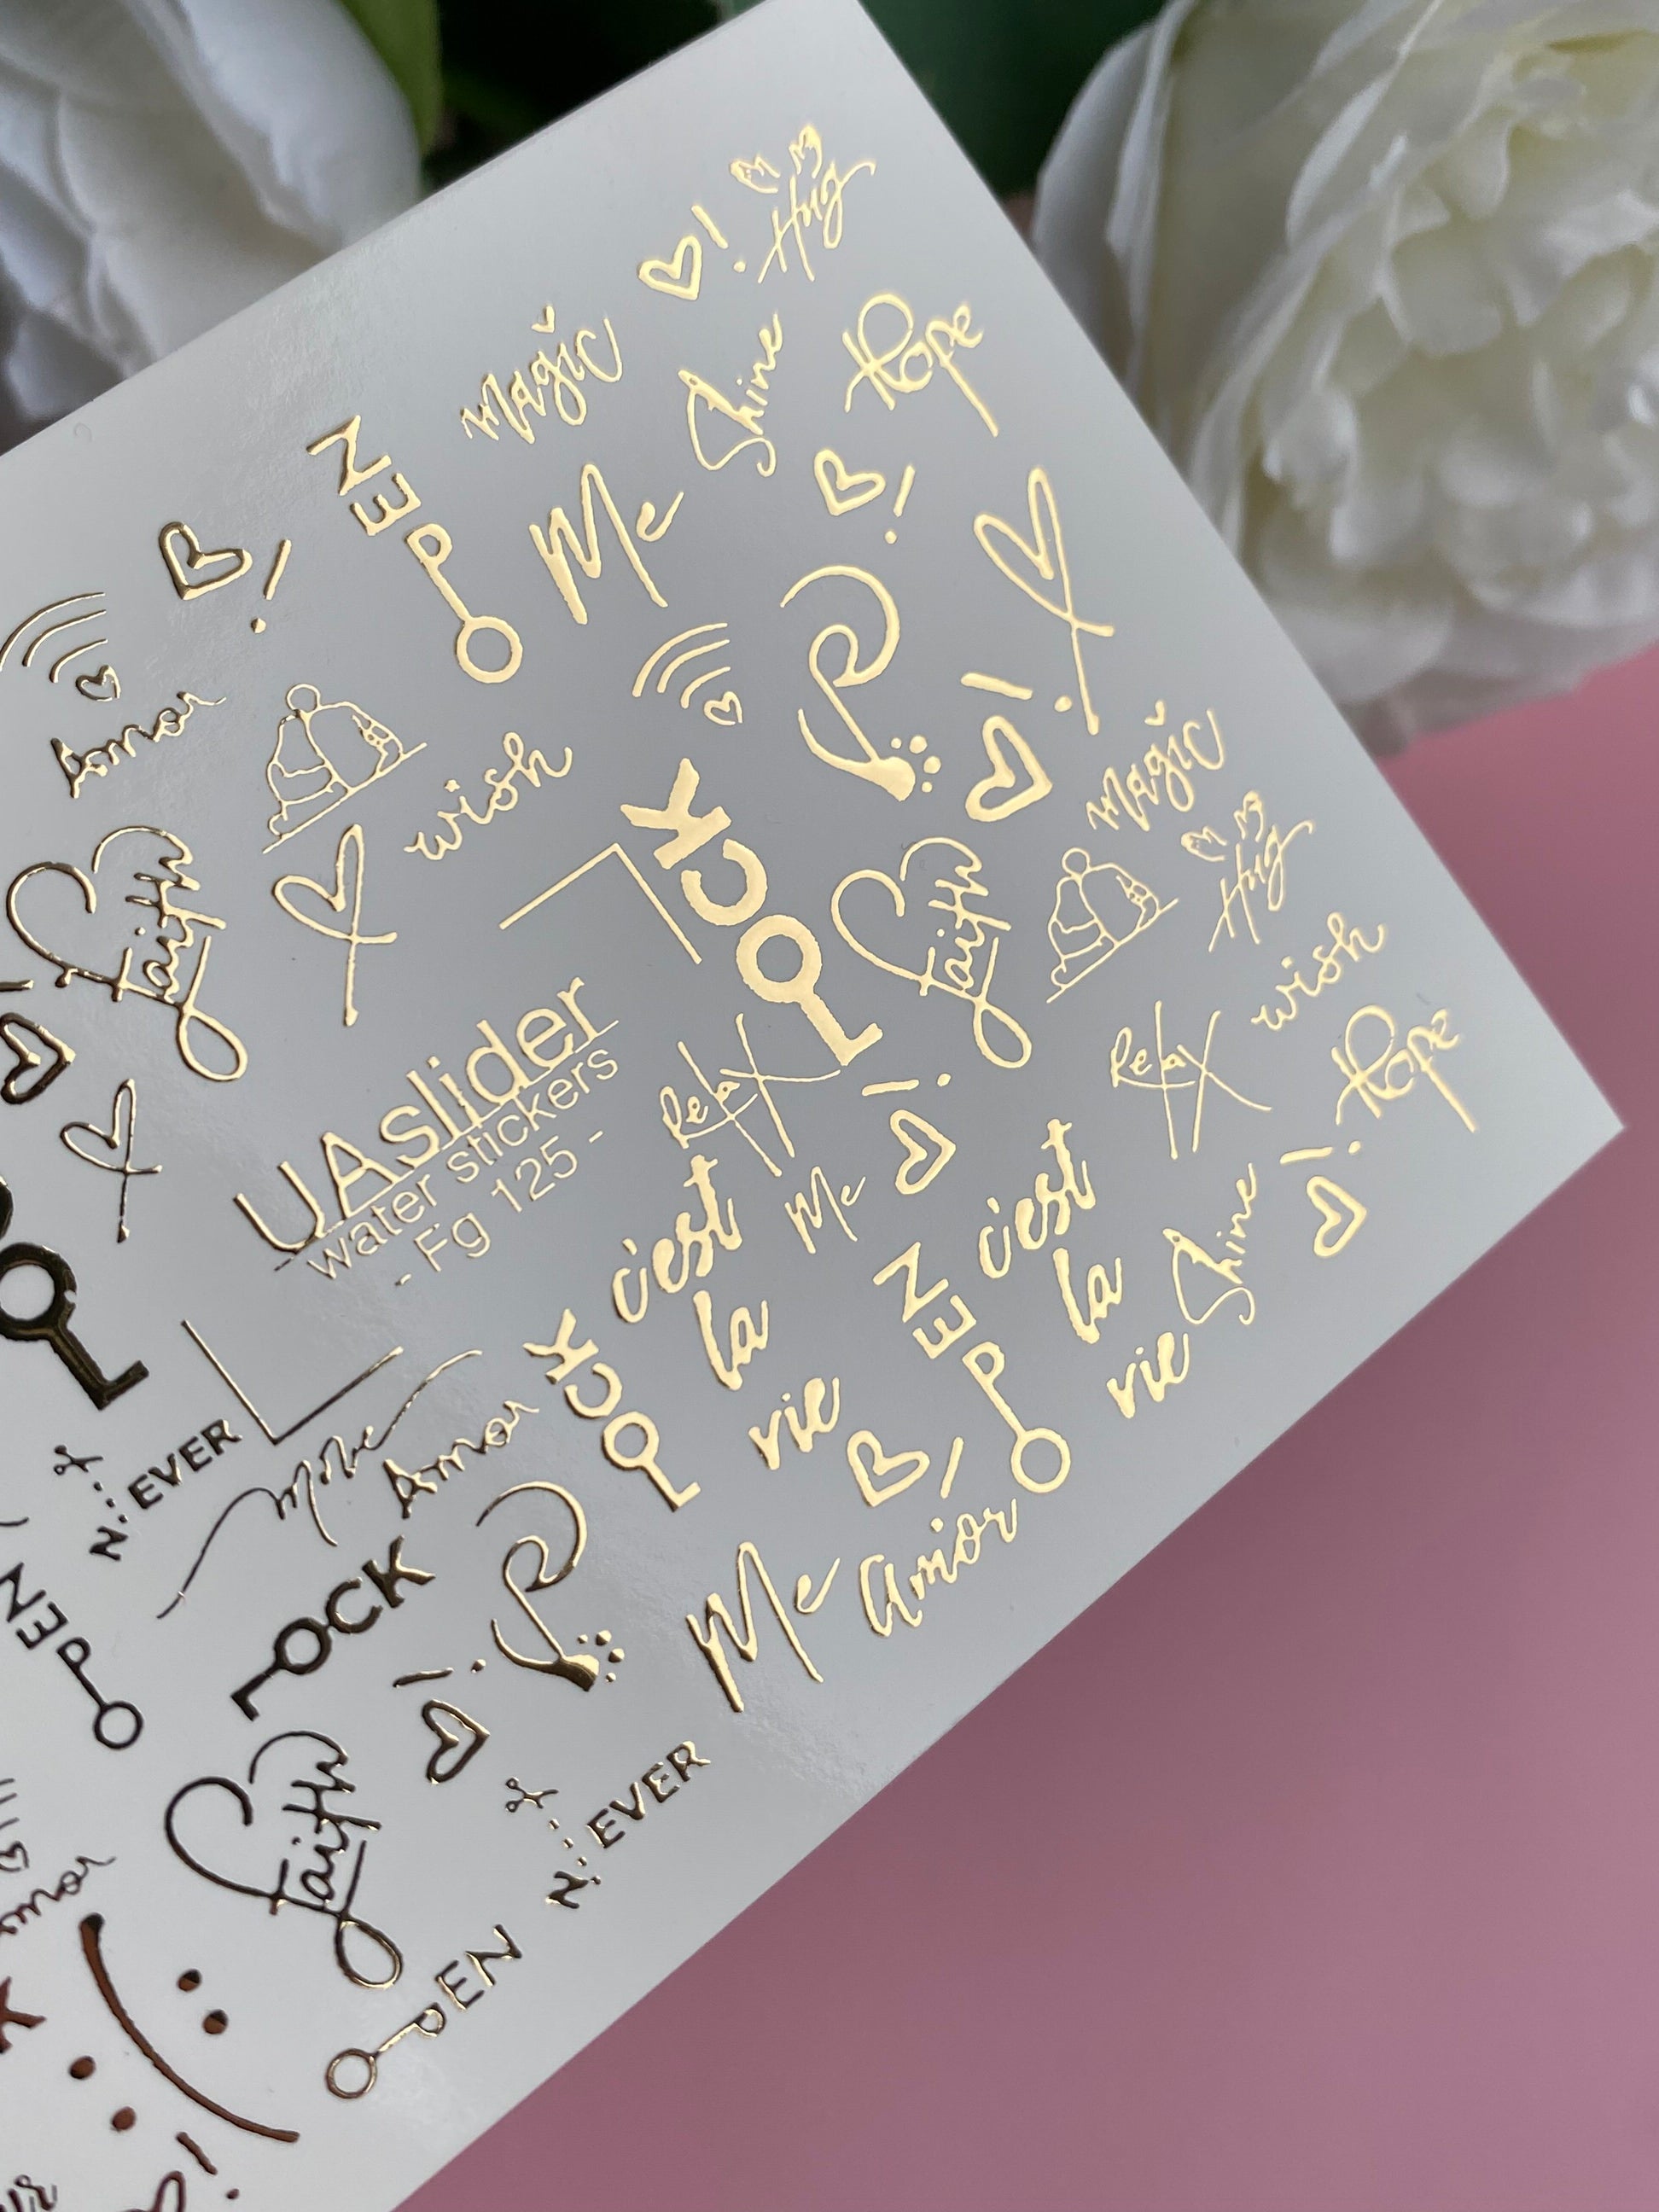 Hug
magic
Shine
Hope
OPEN
Me
Amor
wish
LOCK
magic
Hug
faith
faith
wish
Hope
Relax
Relax
UAslider
water stickers
- Fg 125 -
Me
c'est
la
vie
c'est
la
vie
Shine
OPEN
LOCK
N EVER
More
Amor
amor
Me
LOCK
OPEN
faith
N EVER
OPEN